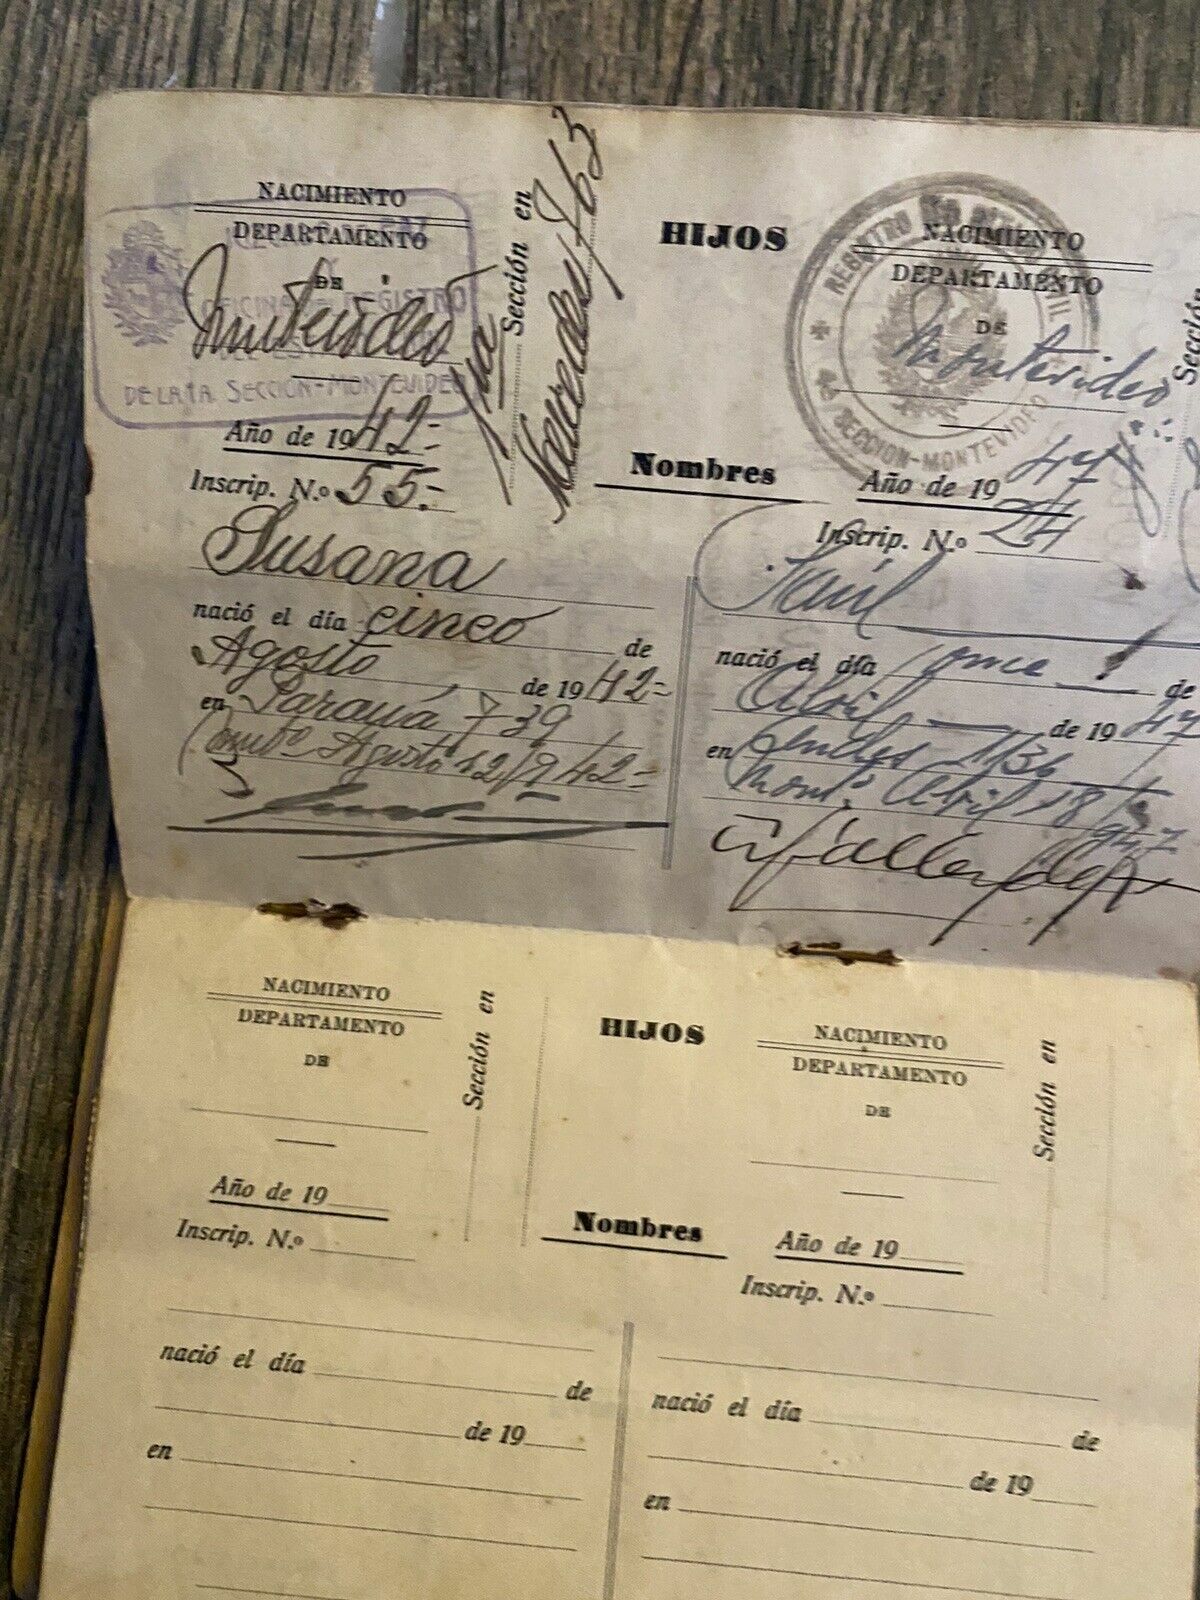 NACIMIENTO
DEPARTAMENTO
DE
Montevideo
OFICINA DE REGISTRO
DE LA 1A. SECCIÓN-MONTEVIDEO
Sección en
1ra
Año de 1942=
Inscrip. N.º 55.=
Susana
nació el día cinco de
Agosto de 1942=
en Paraná 739
Agosto 12/942=
HIJOS
Nombres
NACIMIENTO
DEPARTAMENTO
DE
Montevideo
REGISTRO DEL ESTADO CIVIL
SECCION-MONTEVIDEO
Sección
Año de 1947
Inscrip. N.º 24
Saúl
nació el día once de
Abril de 1947
en 1136
Abril 18/947
NACIMIENTO
DEPARTAMENTO
DE
Sección en
Año de 19
Inscrip. N.º
nació el día de
de 19
en
HIJOS
Nombres
NACIMIENTO
DEPARTAMENTO
DE
Sección en
Año de 19
Inscrip. N.º
nació el día de
de 19
en